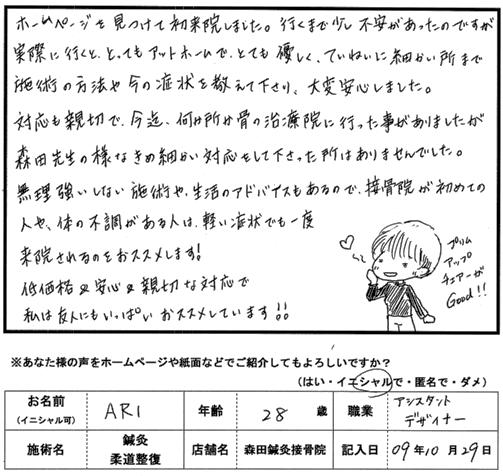 ホームページを見つけて初来院しました。行くまで少し不安があったのですが
実際に行くと、とってもアットホームで、とても優しく、ていねいに細かい所まで
施術の方法や今の症状を教えて下さり、大変安心しました。
対応も親切で、今迄、何ヶ所か骨の治療院に行った事がありましたが
森田先生の様なきめ細かい対応をして下さった所はありませんでした。
無理強いしない施術や、生活のアドバイスもあるので、接骨院が初めての
人や、体の不調がある人は、軽い症状でも一度
来院されるのをおススメします!
低価格&安心&親切な対応で
私は友人にもいっぱいおススメしています!!
プリム
アップ
チェアーが
Good!!
※あなた様の声をホームページや紙面などでご紹介してもよろしいですか?
(はい・イニシャルで・匿名で・ダメ)
お名前 (イニシャル可) ARI 年齢 28 歳 職業 アシスタント デザイナー
施術名 鍼灸 柔道整復 店舗名 森田鍼灸接骨院 記入日 09年10月29日